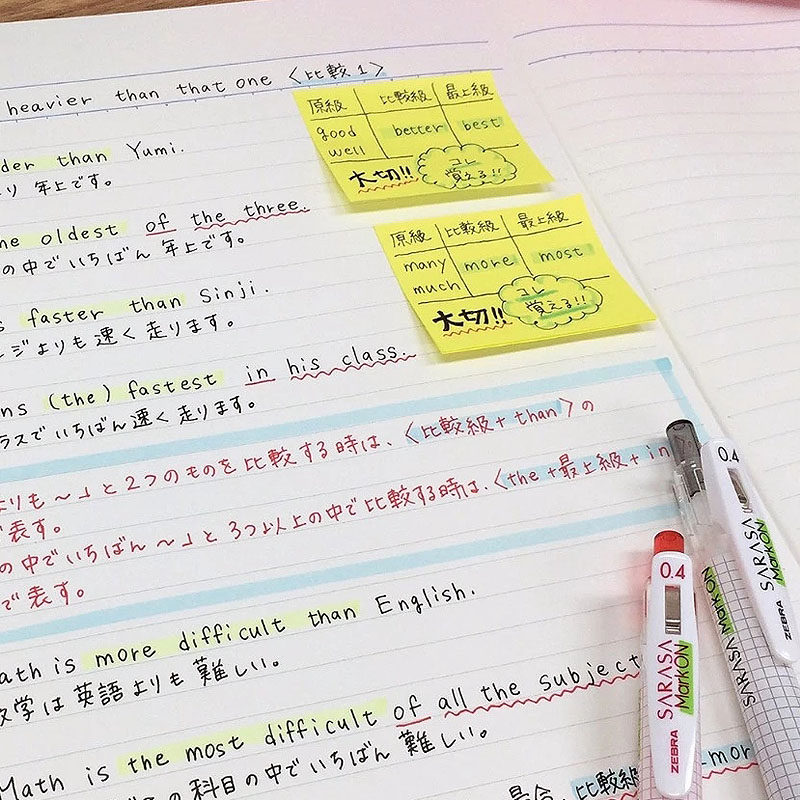 heavier than that one 〈比較1〉
der than Yumi.
り 年上です。
ne oldest of the three.
の中でいちばん 年上です。
faster than Sinji.
ジよりも速く 走ります。
ns (the) fastest in his class.
ラスでいちばん速く 走ります。
原級 比較級 最上級
good better best
well
大切!! コレ
覚える!!
原級 比較級 最上級
many more most
much
大切!! コレ
覚える!!
よりも〜」と2つのものを比較する時は、〈比較級+than〉の
で表す。
の中でいちばん〜」と3つ以上の中で比較する時は、〈the+最上級+in
で表す。
ath is more difficult than English.
数学は英語よりも 難しい。
Math is the most difficult of all the subject
の科目の中でいちばん 難しい。
比較級
mor
0.4
SARASA
MarkON
ZEBRA
SARASA MarkON
0.4
SARASA
MarkON
ZEBRA